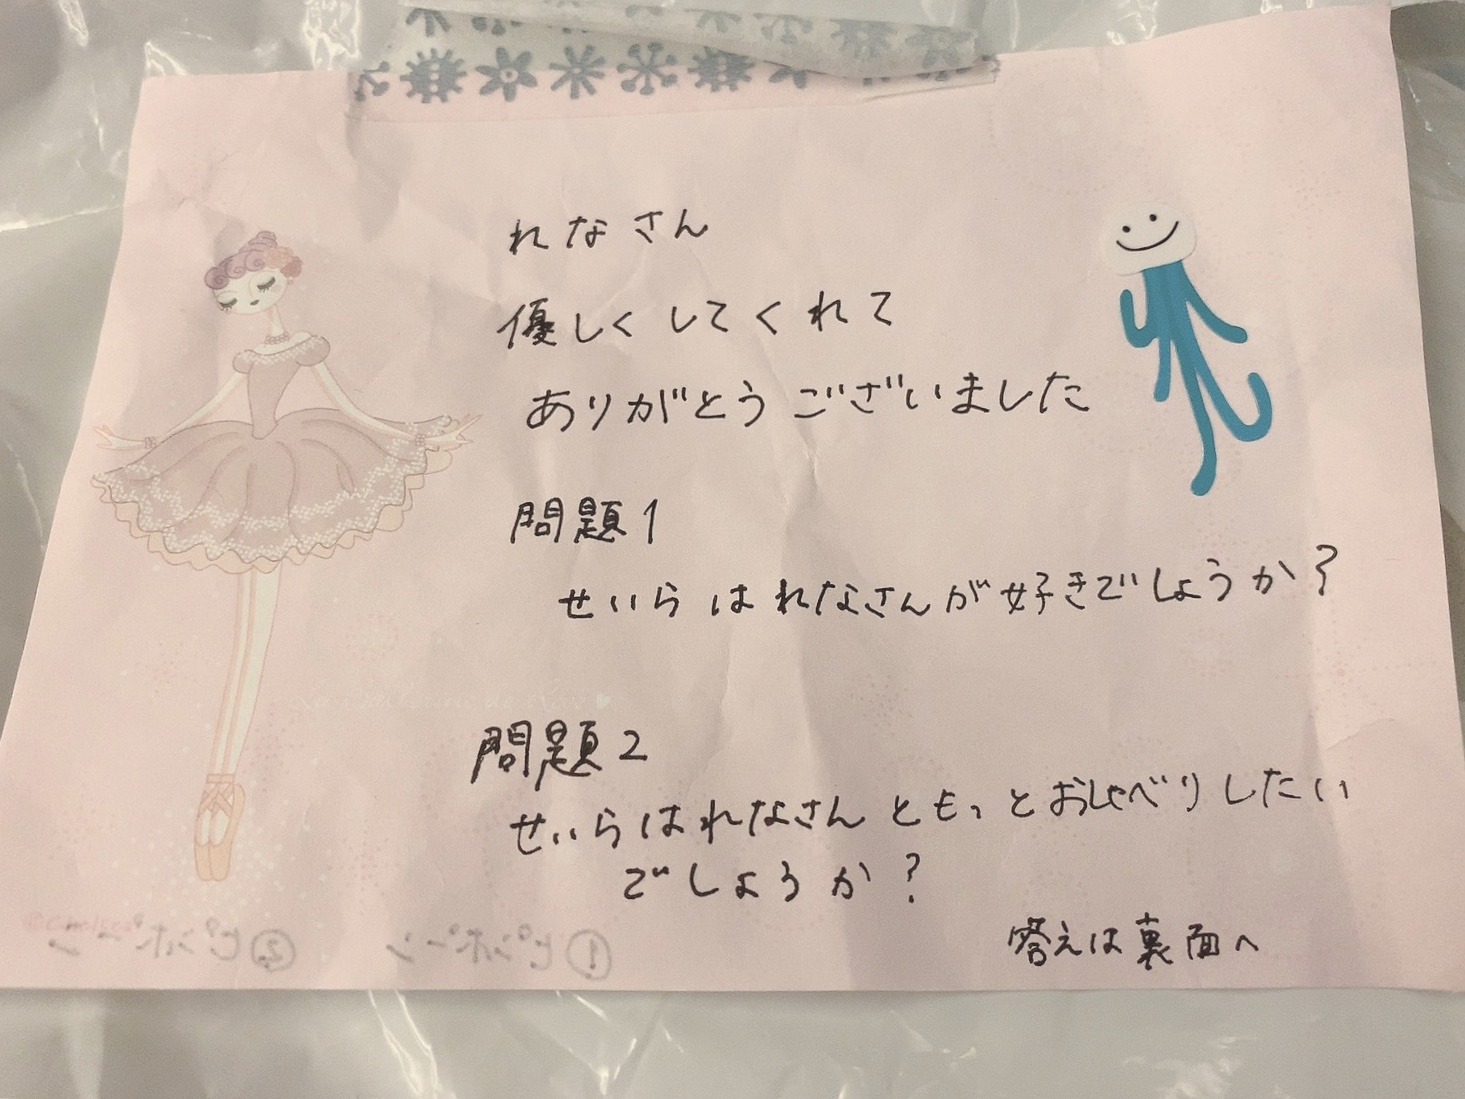 れなさん
優しくしてくれて
ありがとうございました
問題1
せいらはれなさんが好きでしょうか?
問題2
せいらはれなさんともっとおしゃべりしたい
でしょうか?
答えは裏面へ
①ピンポーン ②ピンポーン